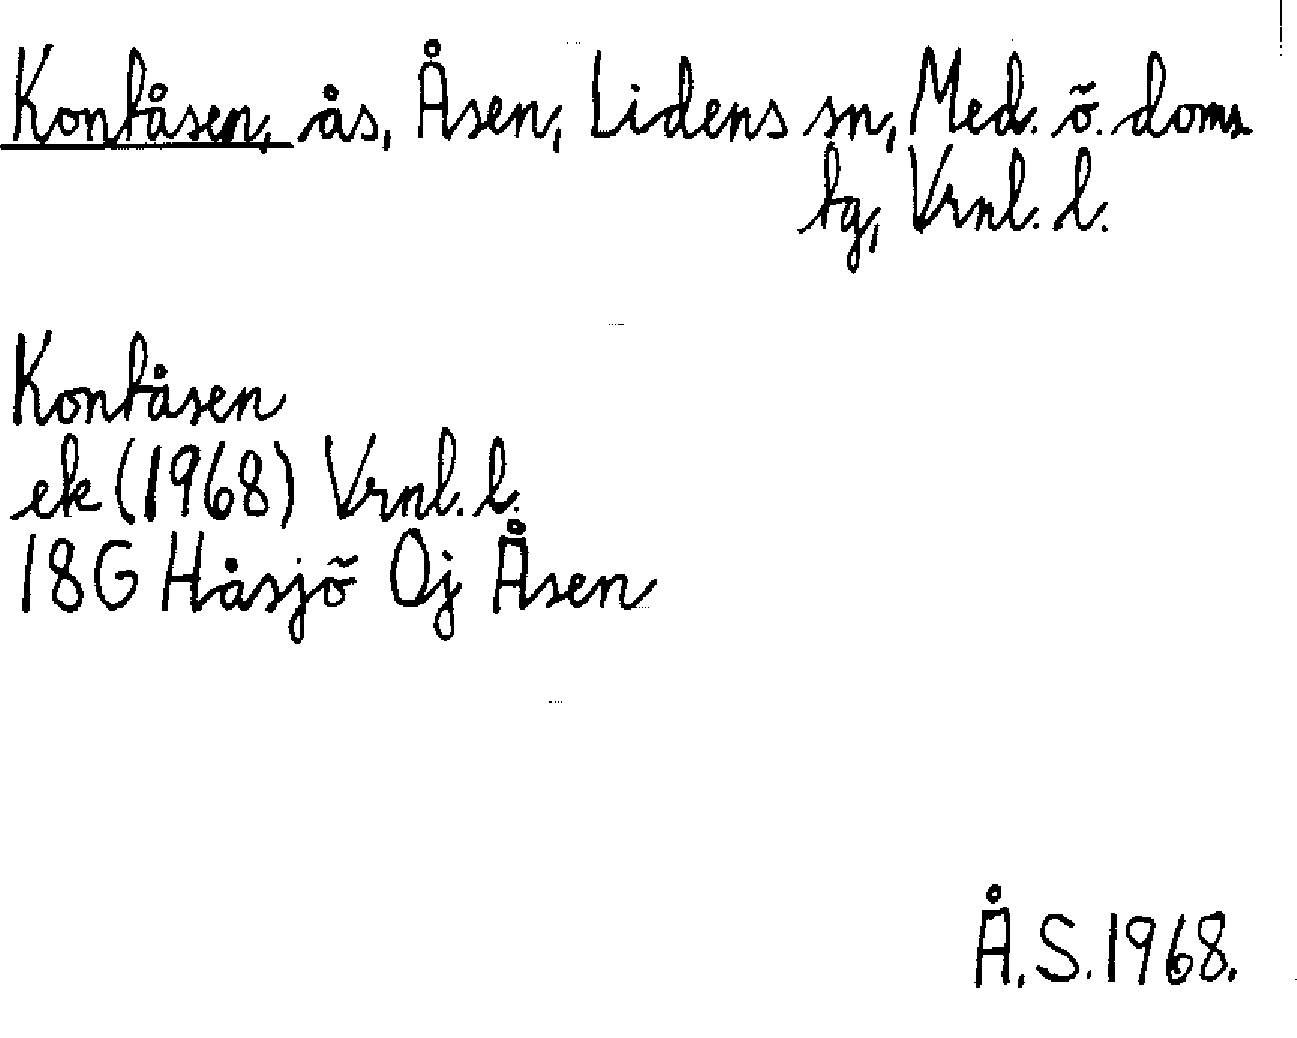 Kontåsen, ås, Åsen, Lidens sn, Med. ö. doms.
tg, Vrnl. l.
Kontåsen
ek (1968) Vrnl. l.
18G Håsjö 0j Åsen
Å.S. 1968.